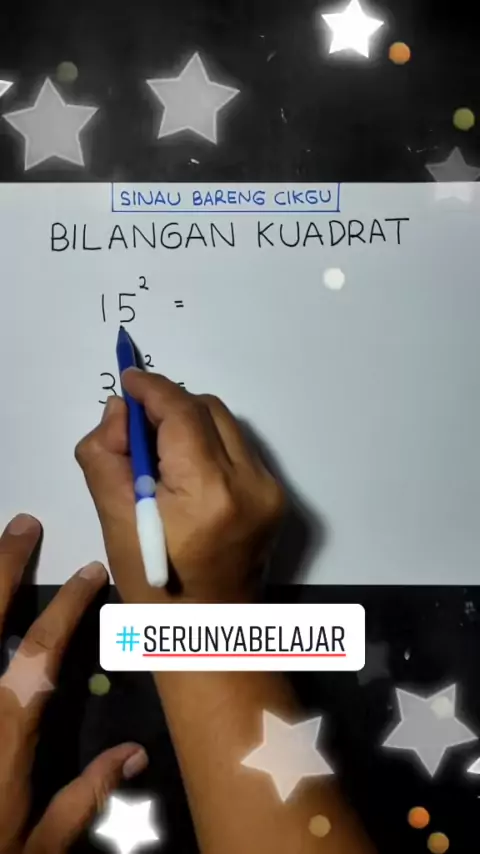 SINAU BARENG CIKGU
BILANGAN KUADRAT
15² =
3 ² =
#SERUNYABELAJAR